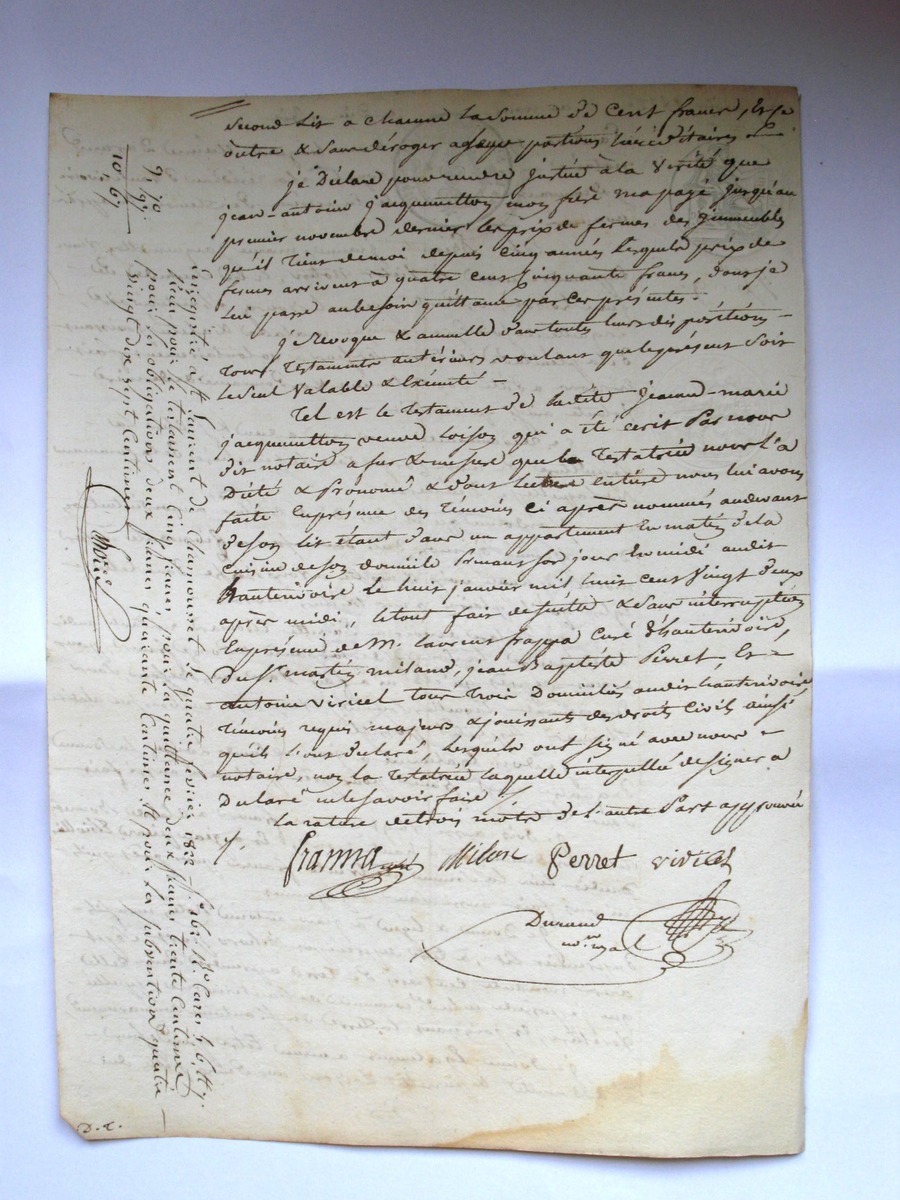 second lit a chacune la somme de cent francs, Et ce
outre & sans déroger a leurs portions héréditaires
je Déclare pour rendre justice à la vérité que
jean-antoine jacquemetton mon fils ma payé jusqu'au
premier novembre dernier les prix de fermes des immeubles
qu'il tient de moi depuis cinq années Lesquels prix de
fermes arrivent à quatre cent cinquante francs, dont je
lui passe au besoin quittance par ces présentes.
je Revoque & annulle dans toutes leurs dispositions
tous Testaments antérieurs voulant que le présent soit
le seul valable & Exécuté
Tel est le Testament de ladite jeanne-marie
jacquemetton veuve loison qui a été écrit Par nous
dit notaire a fur & mesure que la Testatrice nous l'a
Dicté & prononcé & dont lecture entière nous lui avons
faite En présence des témoins ci après nommés audevant
de son lit étant dans un appartement En matin de la
cuisine de son domicile Prenant son jour En midi audit
hauterivoire Le huit janvier mil huit cent vingt deux
après midi, le tout fait de suitte & sans interruption
En présence de M. laurent frappa curé d'hauterivoire,
Du Sr. martin milan, jean Baptiste Perret, Et
antoine viricel tous trois Domiciliés audit hauterivoire
témoins requis majeurs & jouissants des droits civils ainsi
qu'ils l'ont déclaré, Lesquels ont signé avec nous
notaire, non la testatrice laquelle interpellée de signer a
Déclaré ne le savoir faire /
La rature de trois mots de l'autre Part approuvée
/. frappa curé Milan Perret viricel
Durand
nore. royal
Enregistré à St Laurent de Chamousset le quatre février 1822 fo. 161 Ro. Cases 5, 6, & 7.
Reçu pour le testament cinq francs, pour la quittance deux francs trente Centimes
pour les obligations deux francs quarante Centimes & pour La subvention quatre
vingt dix sept Centimes
9, 70
97
10, 67
D. C.